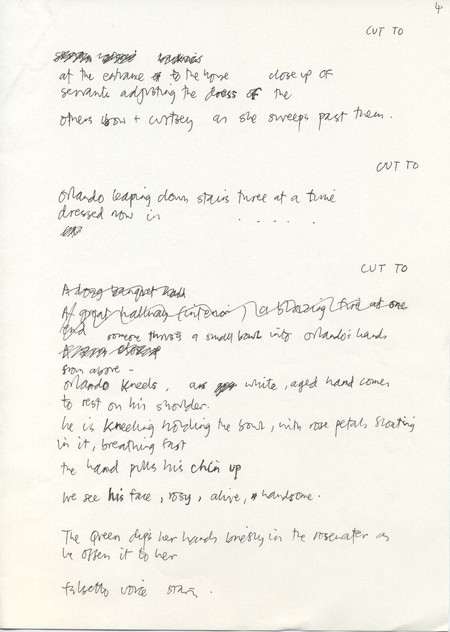 4
CUT TO
at the entrance to the house close up of
servants adjusting the dress of the
others bow + curtsey as she sweeps past them.
CUT TO
Orlando leaping down stairs three at a time
dressed now in . . . . .
CUT TO
A long banquet hall
A great hallway (interior) a blazing fire at one
end someone thrusts a small bowl into Orlando's hands
from above -
Orlando kneels, a white, aged hand comes
to rest on his shoulder.
he is kneeling holding the bowl, with rose petals floating
in it, breathing fast
the hand pulls his chin up
We see his face, rosy, alive, handsome.
The Queen dips her hands briefly in the rosewater as
he offers it to her
falsetto voice starts.